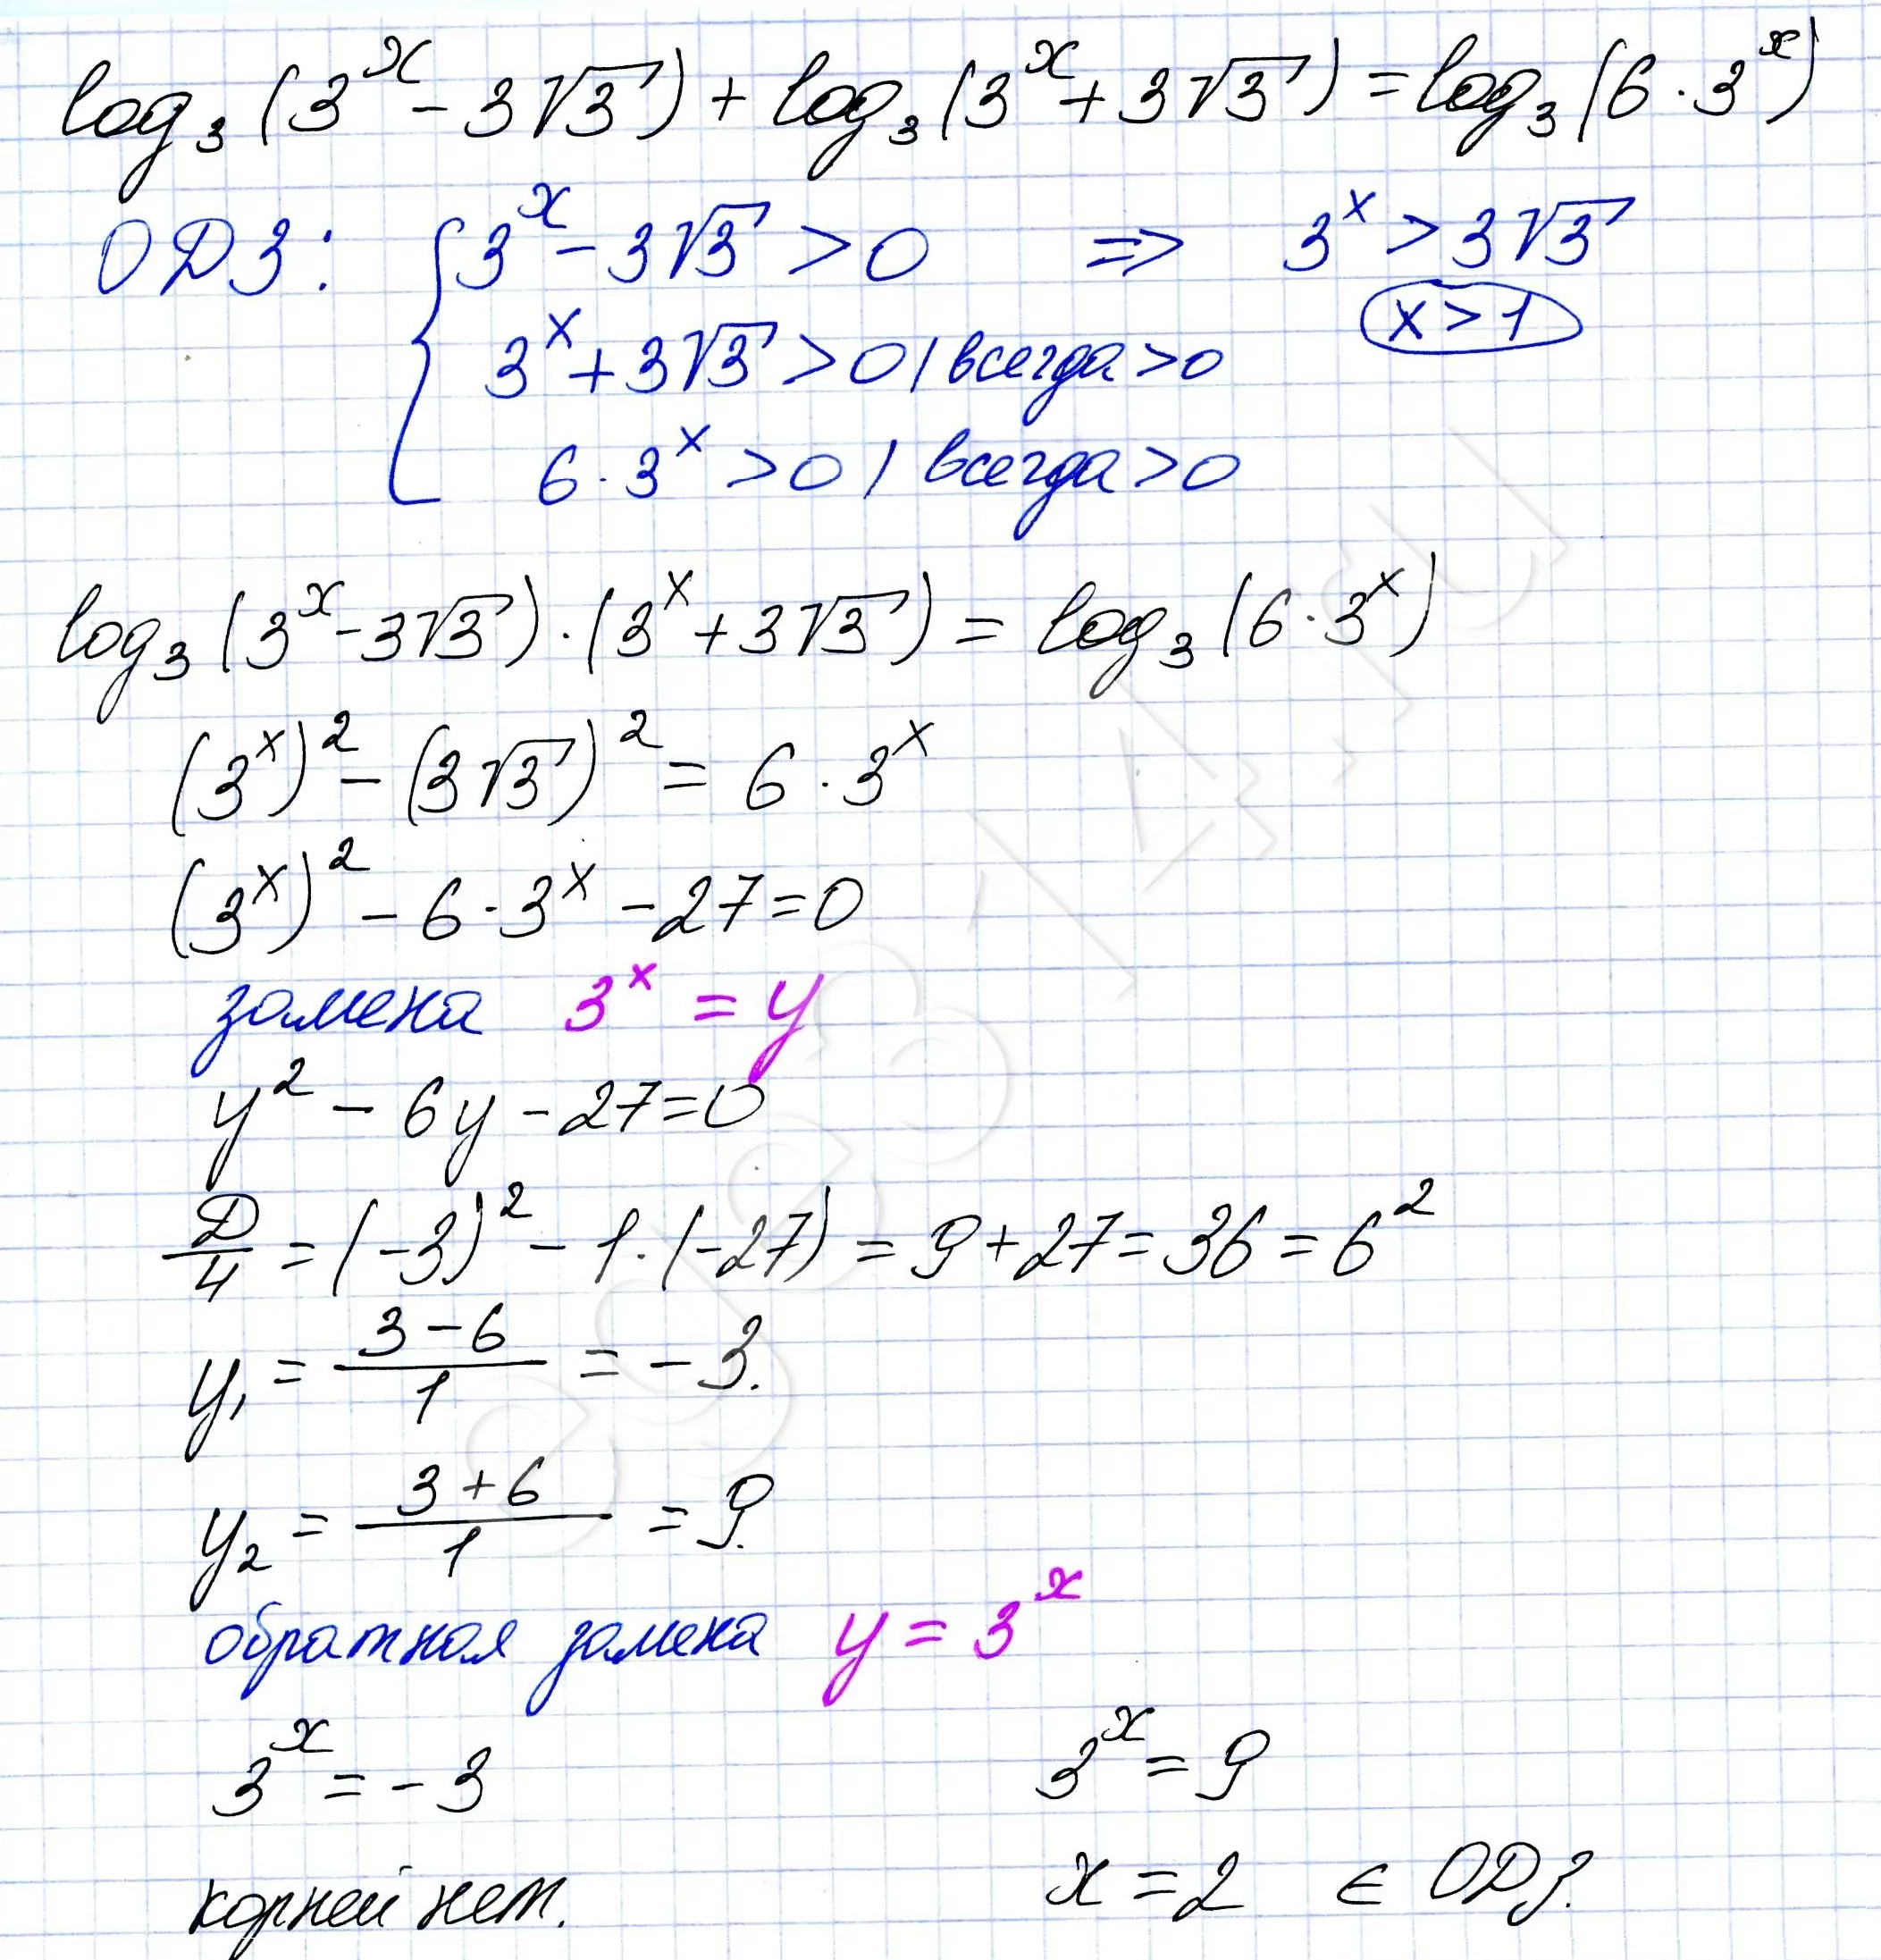 log₃(3ˣ - 3√3) + log₃(3ˣ + 3√3) = log₃(6 · 3ˣ)
ОДЗ: { 3ˣ - 3√3 > 0 => 3ˣ > 3√3
x > 1
3ˣ + 3√3 > 0 / всегда > 0
6 · 3ˣ > 0 / всегда > 0
log₃(3ˣ - 3√3) · (3ˣ + 3√3) = log₃(6 · 3ˣ)
(3ˣ)² - (3√3)² = 6 · 3ˣ
(3ˣ)² - 6 · 3ˣ - 27 = 0
замена 3ˣ = y
y² - 6y - 27 = 0
D/4 = (-3)² - 1 · (-27) = 9 + 27 = 36 = 6²
y₁ = (3 - 6)/1 = -3.
y₂ = (3 + 6)/1 = 9.
обратная замена y = 3ˣ
3ˣ = -3 3ˣ = 9
корней нет. x = 2 ∈ ОДЗ.
ege314.ru